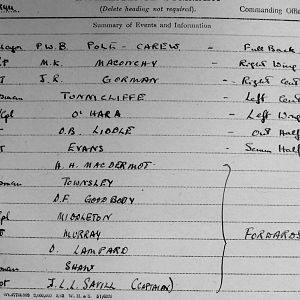 (Delete heading not required).
Commanding Offic
Summary of Events and Information
P.W.B. POLE-CAREW - Full Back
M.K. MACONCHY - Right Wing
J.R. GORMAN - Right Cent
TUNNICLIFFE - Left Cent
O'HARA - Left Wing
D.B. LIDDLE - Out Half
EVANS - Scrum Half
A.H. MACDERMOT
TOWNSLEY
D.F. GOODBODY
MIDDLETON
MURRAY FORWARDS
D. LAMPARD
SHAW
J.L.L. SAVILL (CAPTAIN)